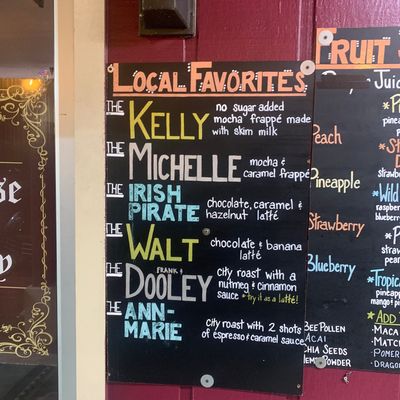 LOCAL FAVORITES
THE KELLY
no sugar added
mocha frappé made
with skim milk
THE MICHELLE
mocha &
caramel frappé
THE IRISH
PIRATE
chocolate, caramel &
hazelnut latté
THE WALT
chocolate & banana
latté
THE FRANK &
DOOLEY
city roast with a
nutmeg & cinnamon
sauce * try it as a latté!
THE ANN-
MARIE
city roast with 2 shots
of espresso & caramel sauce
FRUIT
Juic
Peach
Pineapple
Strawberry
Blueberry
pine
*S
straw
*Wild
raspb
blueber
*P
straw
*Tropica
pineapp
mango & pi
*ADD
MACA
MATC
POMER
DRAGON
BEE POLLEN
ACAI
CHIA SEEDS
POWDER
se
y